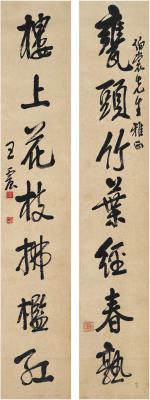 甕頭竹葉經春熟
伯裳先生雅正
樓上花枝拂檻紅
王震